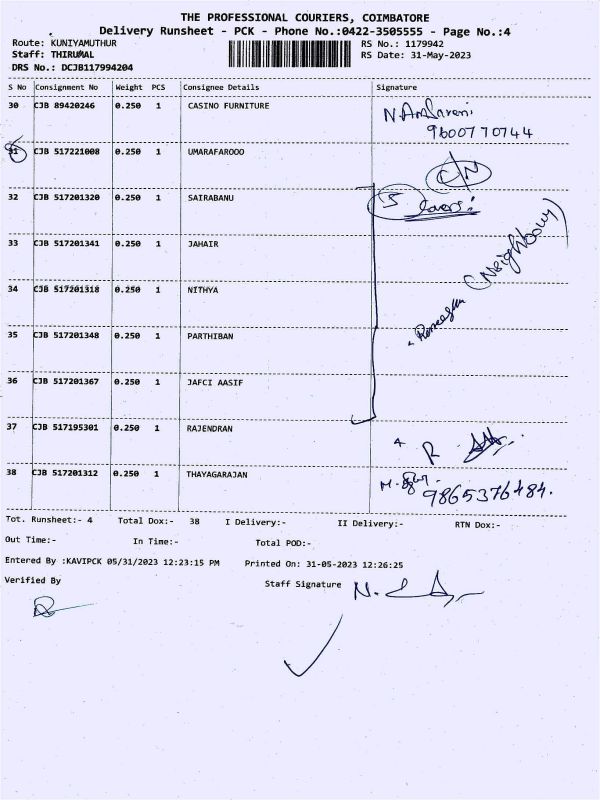 THE PROFESSIONAL COURIERS, COIMBATORE
Delivery Runsheet - PCK - Phone No.:0422-3505555 - Page No.:4
Route: KUNIYAMUTHUR RS No.: 1179942
Staff: THIRUMAL RS Date: 31-May-2023
DRS No.: DCJB117994204
S No Consignment No Weight PCS Consignee Details Signature
30 CJB 89420246 0.250 1 CASINO FURNITURE
9600770744
31 CJB 517221008 0.250 1 UMARAFAROOO
C/N
32 CJB 517201320 0.250 1 SAIRABANU 5
33 CJB 517201341 0.250 1 JAHAIR (Neighbour)
34 CJB 517201318 0.250 1 NITHYA
35 CJB 517201348 0.250 1 PARTHIBAN
36 CJB 517201367 0.250 1 JAFCI AASIF
37 CJB 517195301 0.250 1 RAJENDRAN R
38 CJB 517201312 0.250 1 THAYAGARAJAN
9865376484.
Tot. Runsheet:- 4 Total Dox:- 38 I Delivery:- II Delivery:- RTN Dox:-
Out Time:- In Time:- Total POD:-
Entered By :KAVIPCK 05/31/2023 12:23:15 PM Printed On: 31-05-2023 12:26:25
Verified By Staff Signature